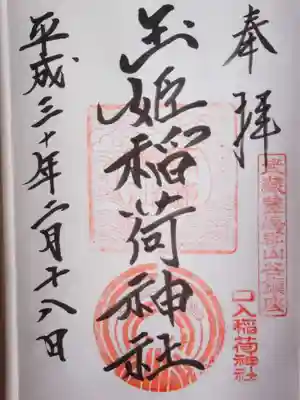 奉拝
玉姫稲荷神社
平成三十年二月十八日
口入稲荷神社